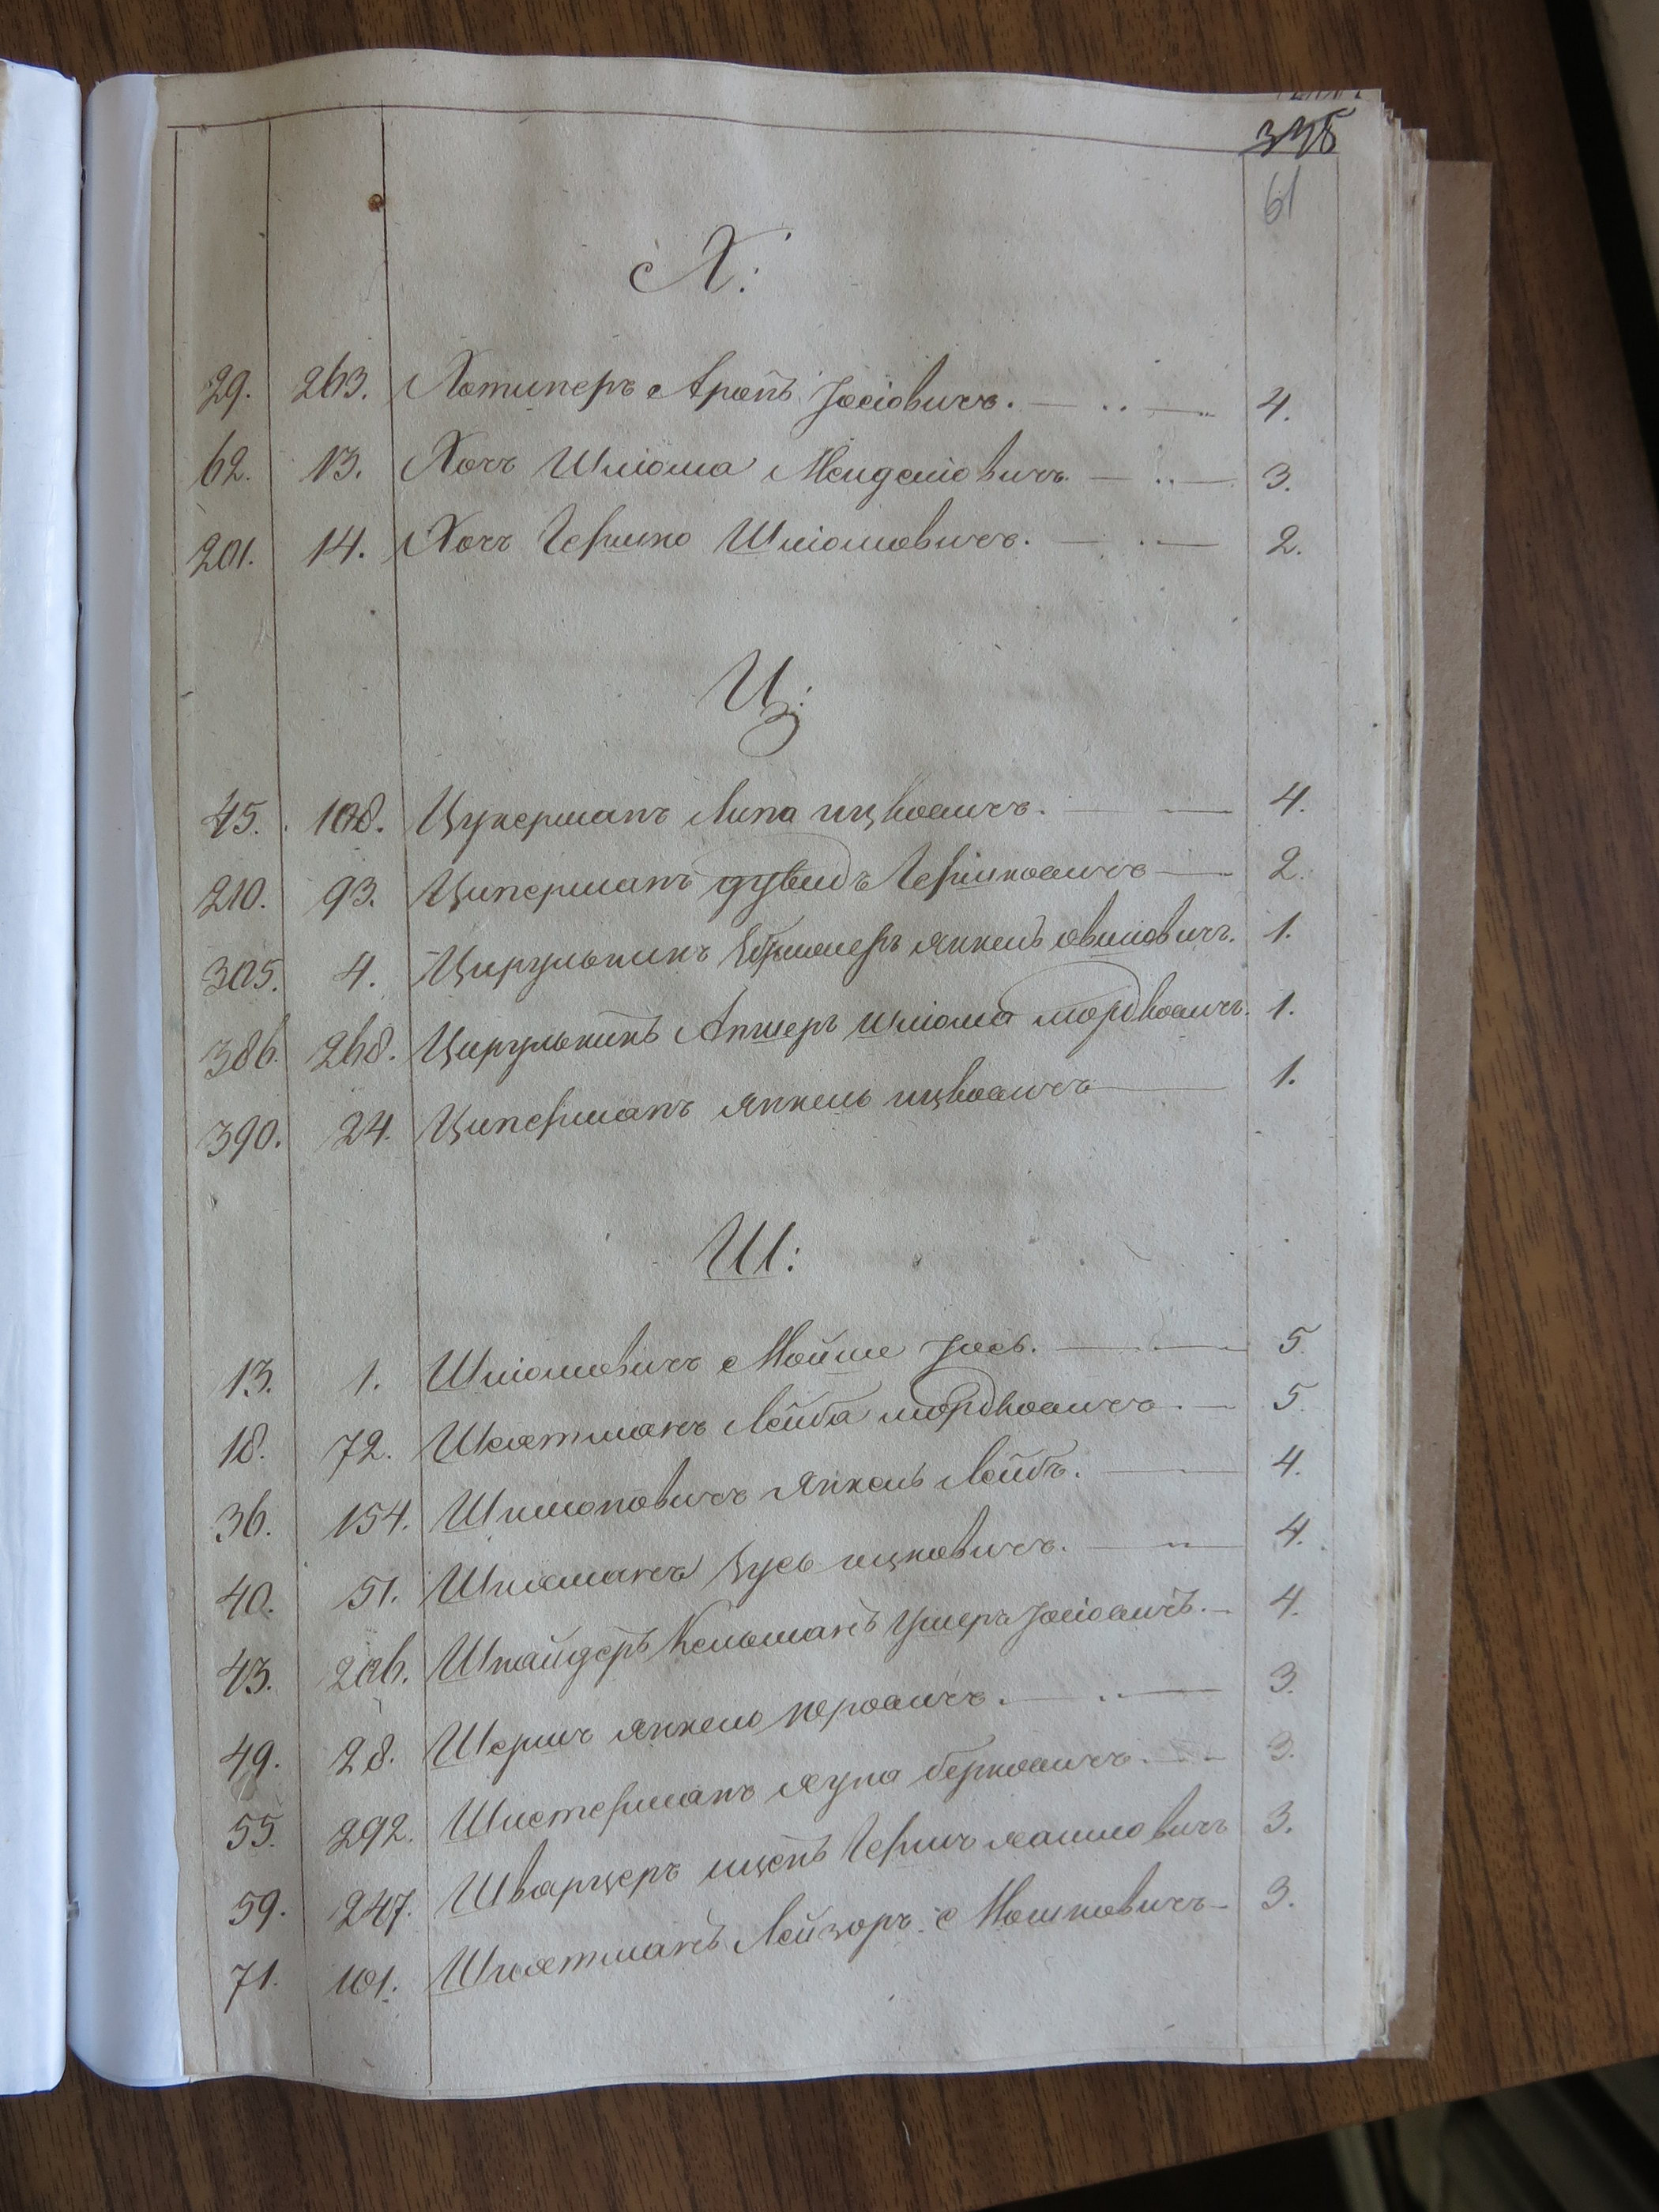 335
61
Х:
29. 263. Хотинеръ Аронъ Іосіовичъ. 4.
62. 13. Хочъ Шліома Менделіовичъ. 3.
201. 14. Хочъ Гершко Шліомовичъ. 2.
Ц:
45. 108. Цукерманъ Липа ицковичъ. 4.
210. 93. Циперманъ дувидъ Гершковичъ 2.
305. 4. Цирульникъ янкель 1.
386. 268. Цирульникъ Аншеръ Шліома мордковичъ. 1.
390. 24. Циперманъ янкель ицковичъ 1.
Ш:
13. 1. Шліомовичъ Мойше Іось. 5.
18. 72. Шлятманъ Лейба мордковичъ. 5.
36. 154. Шимоновичъ Янкель Лейбъ. 4.
40. 51. Зусь ицковичъ. 4.
43. 206. Шнайдеръ Кельманъ Ушеръ Іосіовичъ. 4.
49. 28. янкель 3.
55. 292. берковичъ. 3.
59. 247. Шварцеръ ицекъ Гершъ 3.
71. 101. Шлятманъ Лейзоръ Мошковичъ 3.